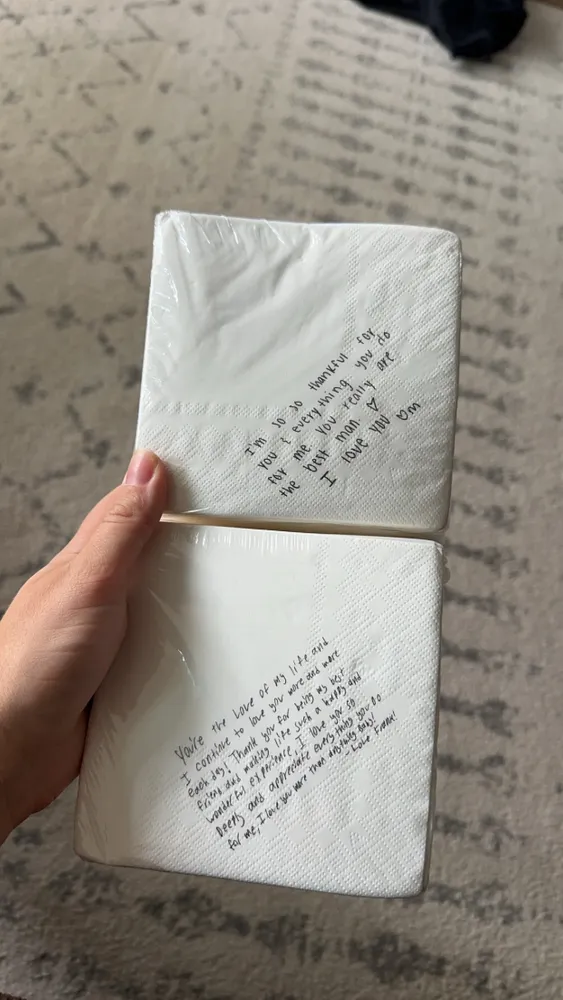 I'm so so thankful for
you & everything you do
for me you really are
the best man ♡
I love you ♡m
You're the Love of my life and
I continue to love you more and more
each day! Thank you for being my best
friend and making life such a happy and
wonderful experience. I love you so
Deeply and appreciate everything you Do
for me, I love you more than anything baby!